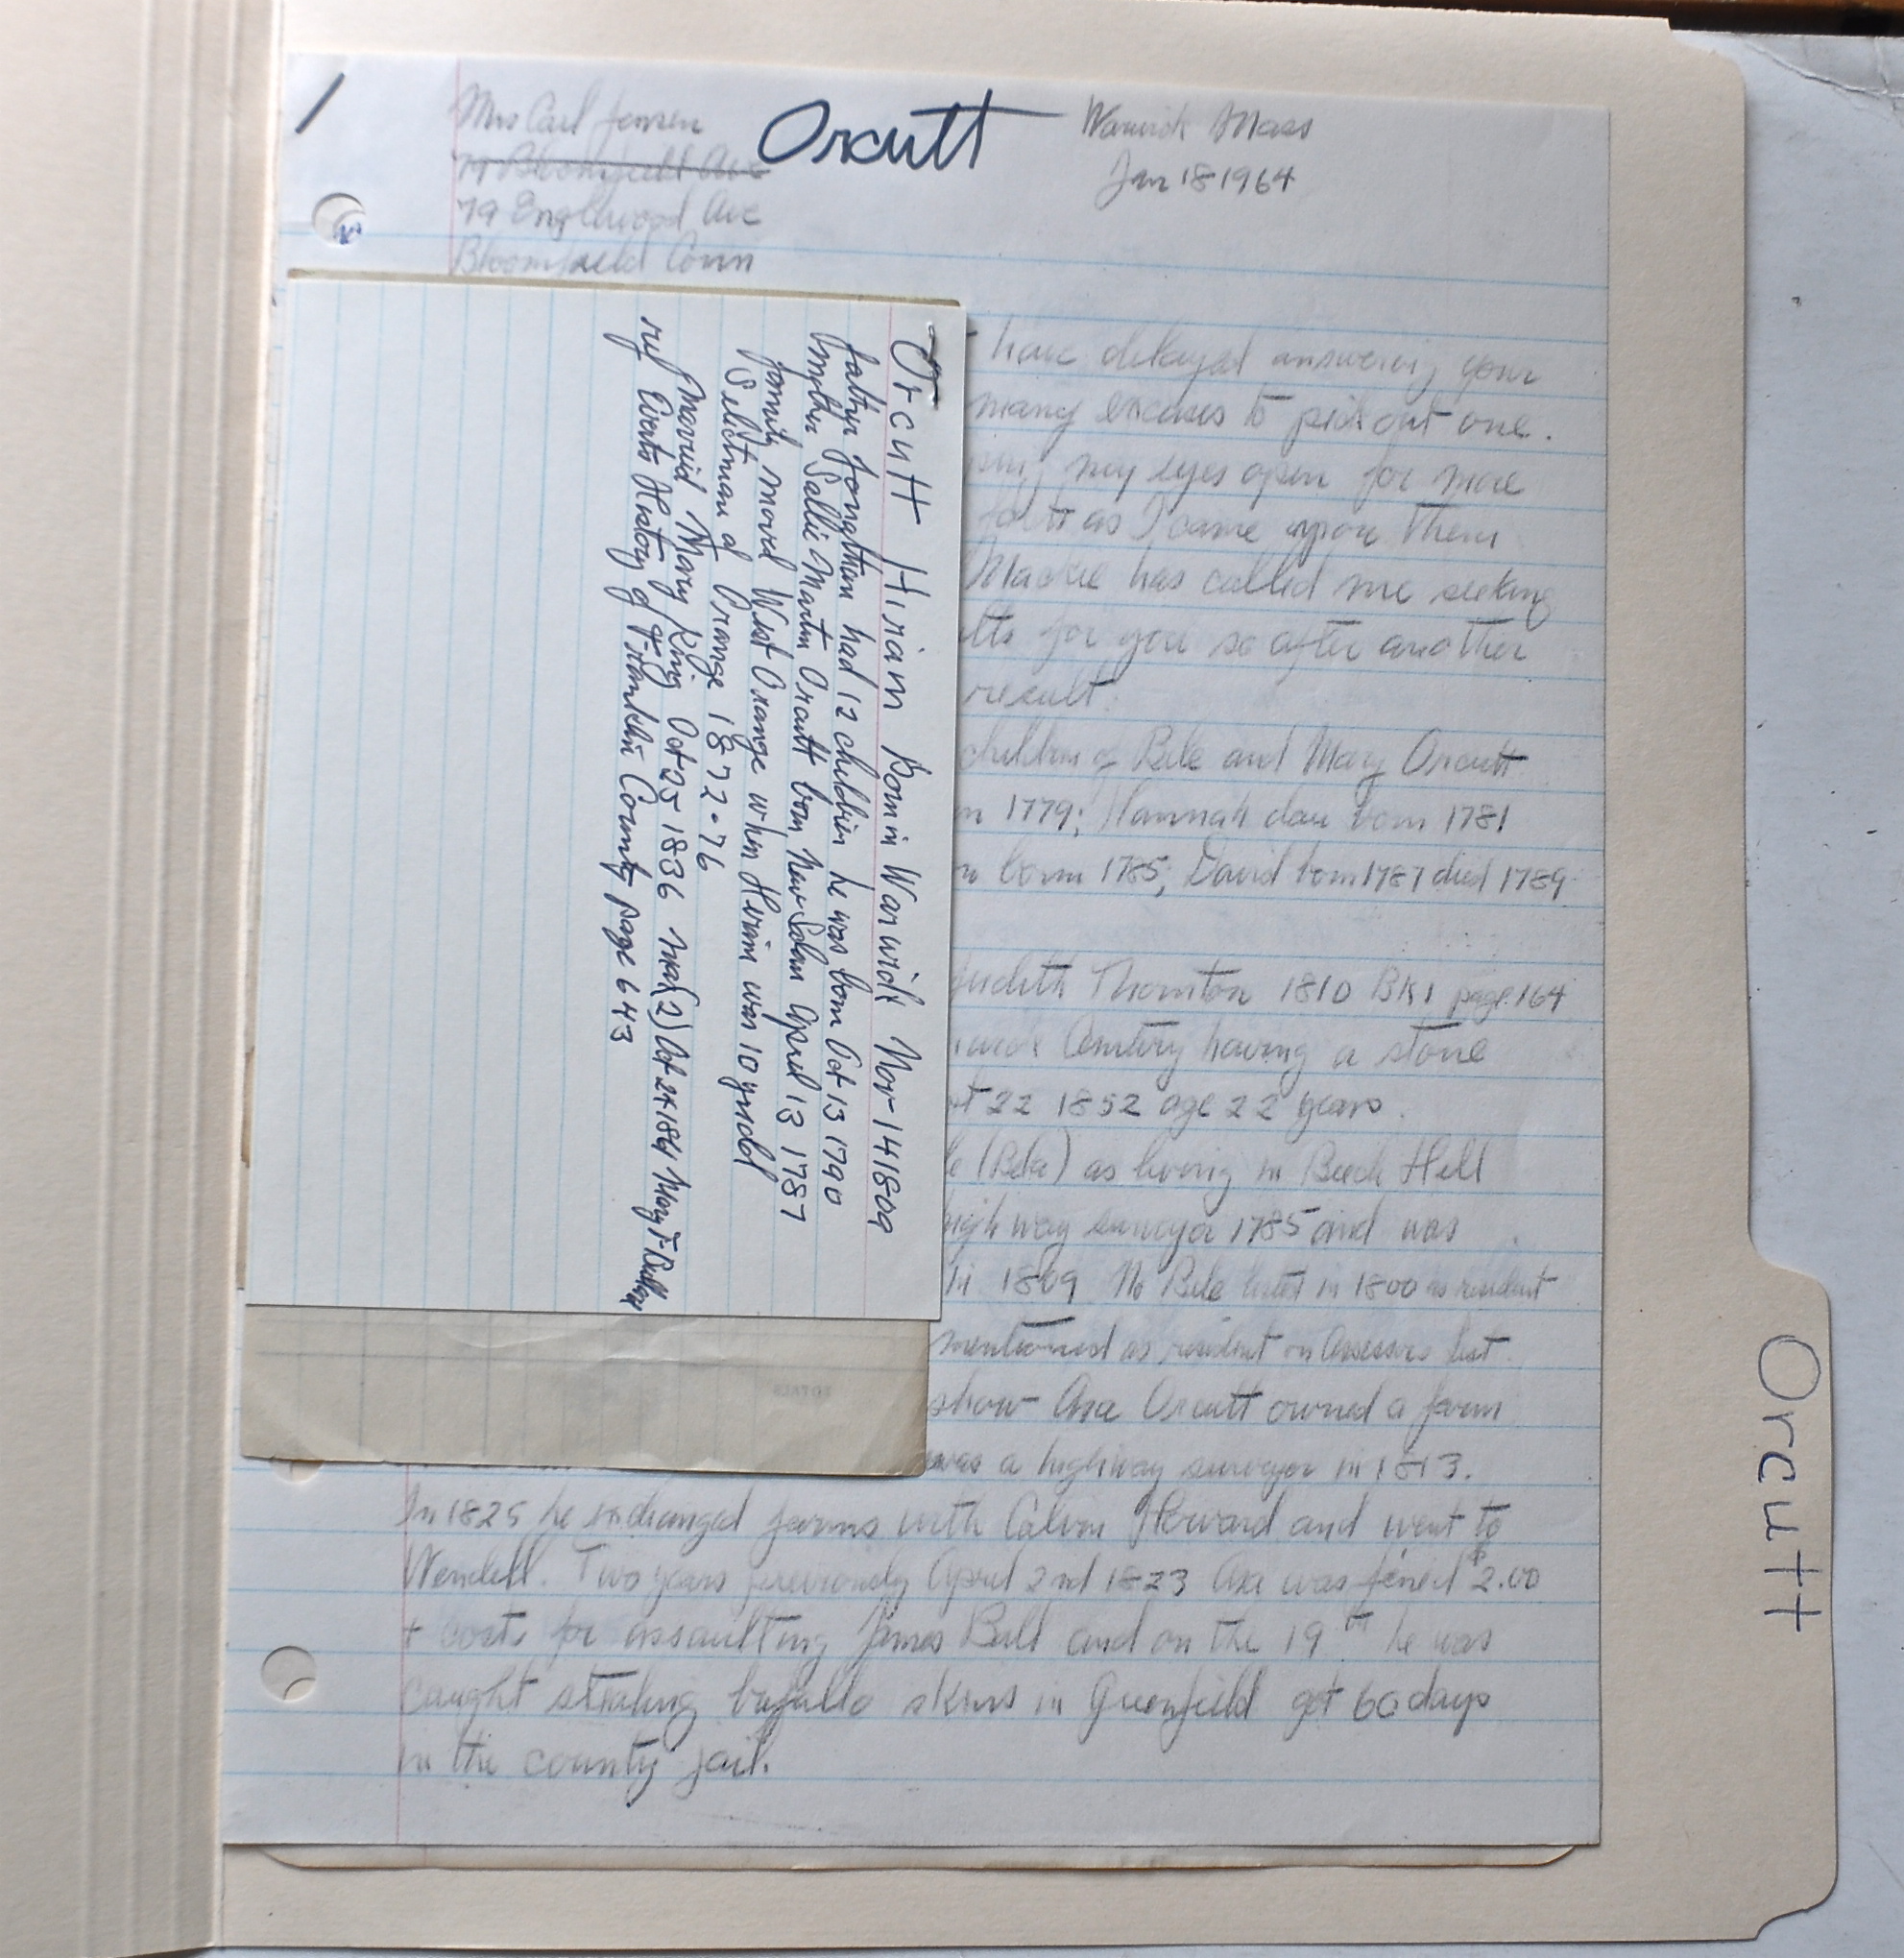 1
Mrs Carl Jensen
79 Bloomfield Ave
79 Englewood Ave
Bloomfield Conn
Orcutt
Warwick Mass
Jan 18 1964
have delayed answering your
many excuses to pick out one.
my eyes open for more
as I came upon them
Mackie has called me seeking
for you so after another
result.
children of Bele and Mary Orcutt
1779; Hannah dau born 1781
born 1785; David born 1787 died 1789
Judith Thornton 1810 BK1 page 164
Cemetery having a stone
22 1852 age 22 years.
(Bela) as living in Beech Hill
highway surveyor 1785 and was
in 1809 No Bele listed in 1800 as resident
mentioned as resident on Assessors list.
show Asa Orcutt owned a farm
was a highway surveyor in 1813.
In 1825 he exchanged farms with Calvin Howard and went to
Wendell. Two years previously April 2nd 1823 Asa was fined $2.00
+ costs for assaulting James Ball and on the 19th he was
caught stealing bufallo skins in Greenfield got 60 days
in the county jail.
Orcutt Hiram Born in Warwick Nov-14 1809
father Jonathan had 12 children he was born Oct 13 1790
mother Sallie Martin Orcutt born New Salem April 13 1787
family moved West Orange when Hiram was 10 yrs old
Selectman of Orange 1872-76
married Mary King Oct 25 1836
ref Everts History of Franklin County page 643
Orcutt